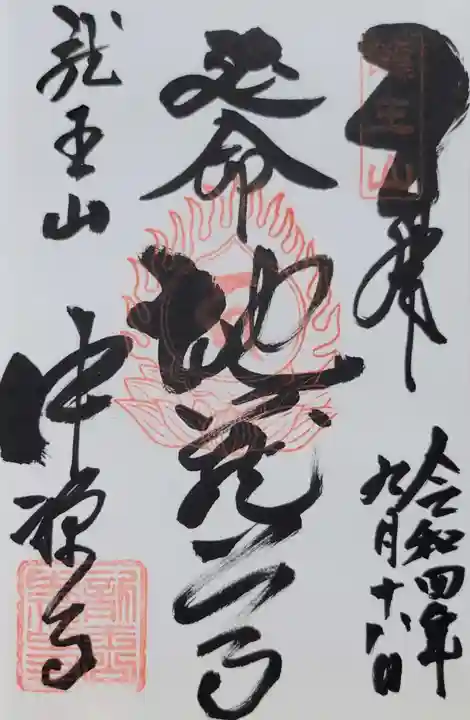 奉拝
令和四年
九月十八日
延命
地蔵尊
龍王山
中禅寺
龍王山